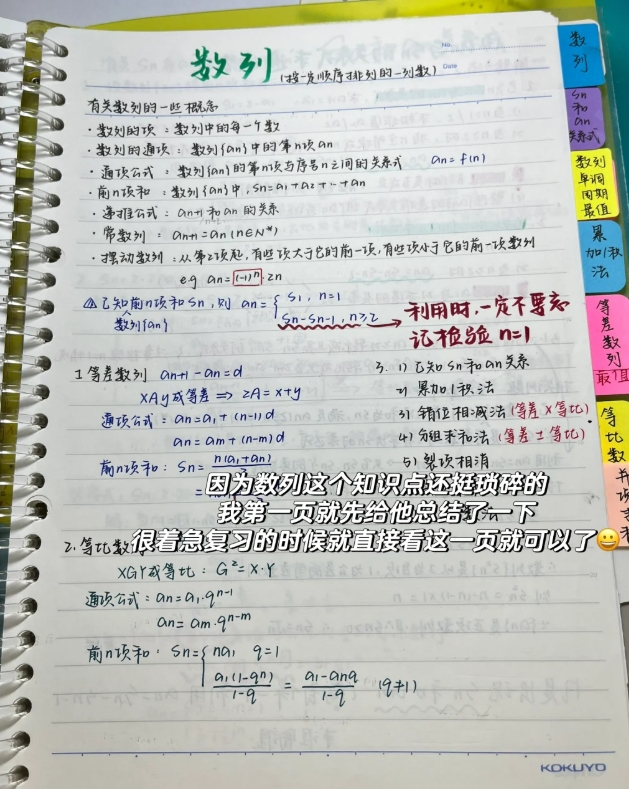 数列 (按一定顺序排列的一列数)
No.
Date
有关数列的一些概念
·数列的项：数列中的每一个数
·数列的通项：数列{an}中的第n项an
·通项公式：数列{an}的第n项与序号n之间的关系式 an=f(n)
·前n项和：数列{an}中,Sn=a1+a2+…+an
·递推公式：an+1和an的关系
·常数列：an+1=an(n∈N*)
·摆动数列：从第2项起,有些项大于它的前一项,有些项小于它的前一项数列
eg an=(-1)ⁿ·2n
△已知前n项和Sn,则 an={S1, n=1
数列{an}
Sn-Sn-1, n≥2
利用时,一定不要忘
记检验 n=1
1.等差数列 an+1-an=d
XAy成等差⇒2A=x+y
通项公式：an=a1+(n-1)d
an=am+(n-m)d
前n项和：Sn=n(a1+an)
3. 1) 已知Sn和an关系
2) 累加/积法
3) 错位相减法(等差×等比)
4) 分组求和法(等差±等比)
5) 裂项相消
因为数列这个知识点还挺琐碎的
我第一页就先给他总结了一下
很着急复习的时候就直接看这一页就可以了😀
2.等比数
XGY成等比：G²=X·Y
通项公式：an=a1·qⁿ⁻¹
an=am·qⁿ⁻ᵐ
前n项和：Sn={na1 q=1
a1(1-qⁿ)/1-q = a1-anq/1-q (q≠1)
KOKUYO
数列
Sn和an关系式
数列单调周期最值
累加/积法
等差数列最值
等比数